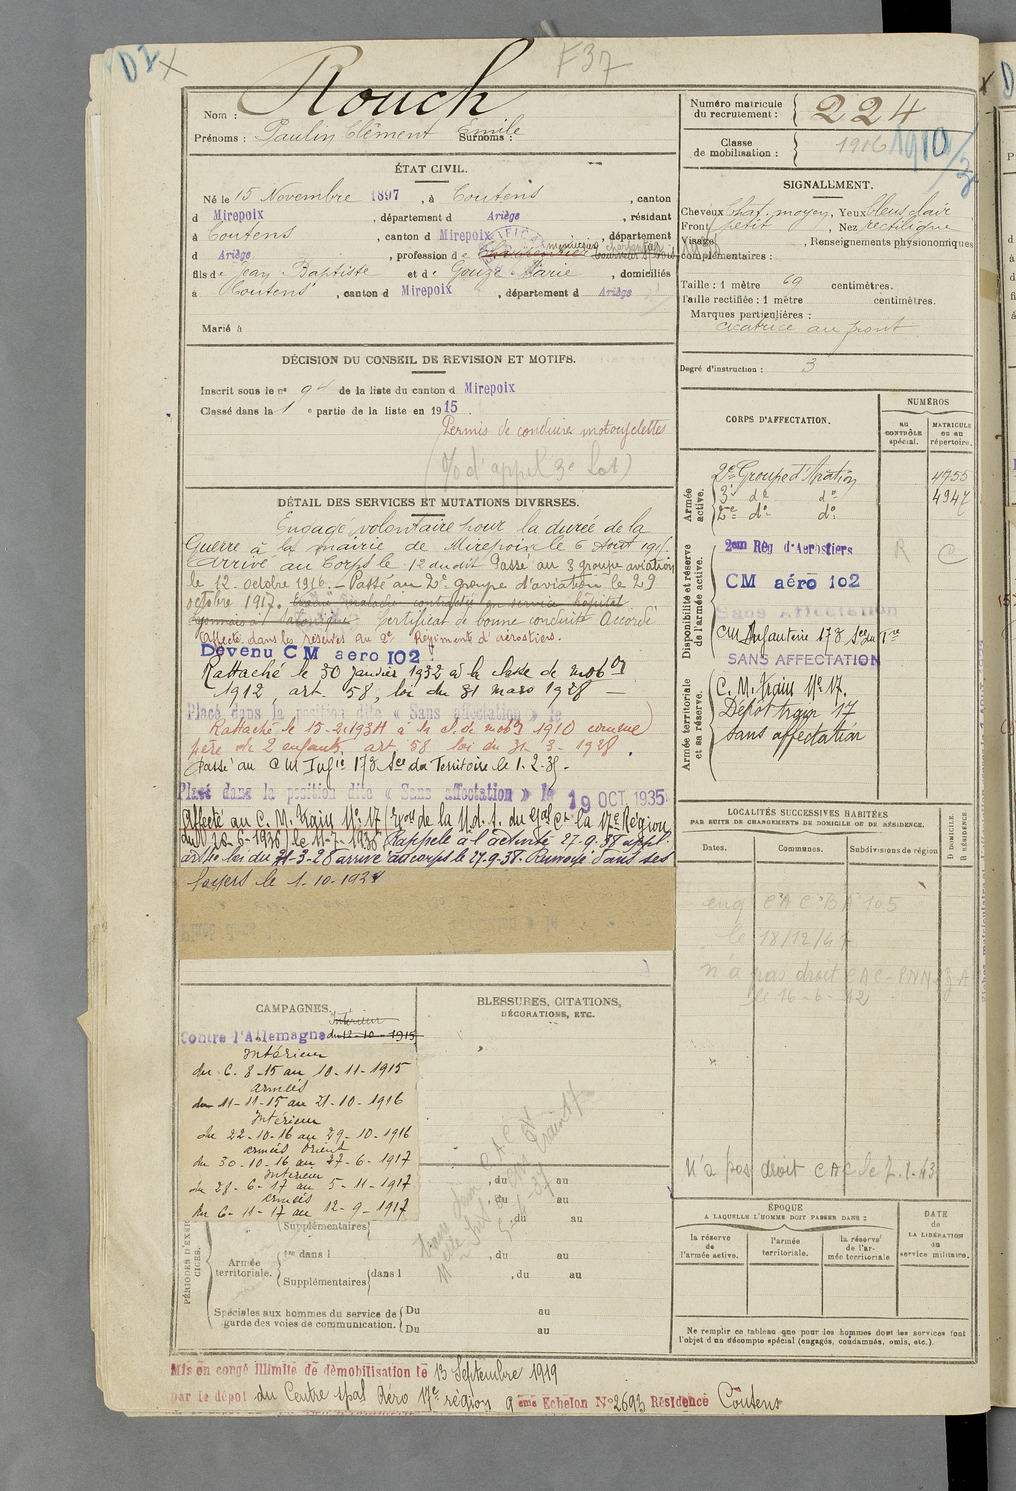 D2 X
F37
Nom : Rouch
Prénoms : Paulin Clément Emile Surnoms :
Numéro matricule du recrutement : 224
Classe de mobilisation : 1916 1910/3
ÉTAT CIVIL.
Né le 15 Novembre 1897, à Coutens, canton
d Mirepoix, département d Ariège, résidant
à Coutens, canton d Mirepoix, département
d Ariège, profession de menuisier
fils de Jean-Baptiste et de Gouze Marie, domiciliés
à Coutens, canton d Mirepoix, département d Ariège
Marié à
SIGNALEMENT.
Cheveux chat. moyen, Yeux bleus clair
Front petit, Nez rectiligne
Visage, Renseignements physionomiques
complémentaires :
Taille : 1 mètre 69 centimètres.
Taille rectifiée : 1 mètre centimètres.
Marques particulières :
cicatrice au front
Degré d'instruction : 3
DÉCISION DU CONSEIL DE REVISION ET MOTIFS.
Inscrit sous le n° 94 de la liste du canton d Mirepoix
Classé dans la 1 e partie de la liste en 1915.
Permis de conduire motocyclettes
(% d'appel 3e Lot)
CORPS D'AFFECTATION.
NUMÉROS
AU CONTRÔLE spécial.
MATRICULE ou au répertoire.
Armée active.
2e Groupe d'Aviation 4755
3e do do 4947
2me do do
Disponibilité et réserve de l'armée active.
2em Rég d'Aerostiers R C
CM aéro 102
Sans Affectation
CM Infanterie 178 Sce du Tre
SANS AFFECTATION
Armée territoriale et sa réserve.
C. M. Train No 17.
Dépôt train 17
sans affectation
DÉTAIL DES SERVICES ET MUTATIONS DIVERSES.
Engagé volontaire pour la durée de la
Guerre à la mairie de Mirepoix le 6 Août 1915.
Arrivé au Corps le 12 du dit Passé au 3 groupe aviation
le 12 octobre 1916. - Passé au 2e groupe d'aviation le 29
octobre 1917. Evacué maladie contractée en service hôpital
Certificat de bonne conduite Accordé
Affecté dans les réserves au 2e Régiment d'aérostiers.
Devenu CM aero 102
Rattaché le 30 janvier 1932 à la classe de mobon
1912 art 58, loi du 31 mars 1928 —
Placé dans la position dite « Sans affectation » le
Rattaché le 15-2-1934 à la cl. de mobon 1910 comme
père de 2 enfants, art. 58 loi du 31-3-1928.
Passé au CM Infie 178 Sce du Territoire le 1.2.35.
Placé dans la position dite « Sans affectation » le 19 OCT 1935
Affecté au C. M. Train No 17 (ryon de la N.d.S. du Gjal Ct la 17e Région
du 26-6-1936) le 11-7-1936 Rappelé à l'activité 27-9-38 appl.
art 40 loi du 31-3-28 arrivé au corps le 27.9.38. Renvoyé dans ses
foyers le 1.10.1938
LOCALITÉS SUCCESSIVES HABITÉES
PAR SUITE DE CHANGEMENTS DE DOMICILE OU DE RÉSIDENCE.
Dates. Communes. Subdivisions de région D DOMICILE. R RÉSIDENCE
enq CAC BA 105
le 18/12/41
n'a pas droit CAC-PNN
le 16-6-42
N'a pas droit CAC le 7.1.43
CAMPAGNES.
Contre l'Allemagne Intérieur du 12-10-1915
Intérieur
du 6.8-15 au 10-11-1915
armées
du 11-11-15 au 21-10-1916
Intérieur
du 22-10-16 au 29-10-1916
armées Orient
du 30-10-16 au 27-6-1917
Intérieur
du 28-6-17 au 5-11-1917
armées
du 6-11-17 au 12-9-1917
BLESSURES, CITATIONS, DÉCORATIONS, ETC.
, du au
, du au
Supplémentaires , du au
PÉRIODES D'EXERCICES.
Armée territoriale.
1re dans l , du au
Supplémentaires dans l , du au
Spéciales aux hommes du service de garde des voies de communication. Du au
Du au
ÉPOQUE
A LAQUELLE L'HOMME DOIT PASSER DANS :
la réserve de l'armée active.
l'armée territoriale.
la réserve de l'armée territoriale
DATE de LA LIBÉRATION du service militaire.
Ne remplir ce tableau que pour les hommes dont les services font
l'objet d'un décompte spécial (engagés, condamnés, omis, etc.).
Mis en congé illimité de démobilisation le 13 Septembre 1919
par le dépôt du Centre spal Aéro 17e région 9 ème Echelon No 2693 Résidence Coutens